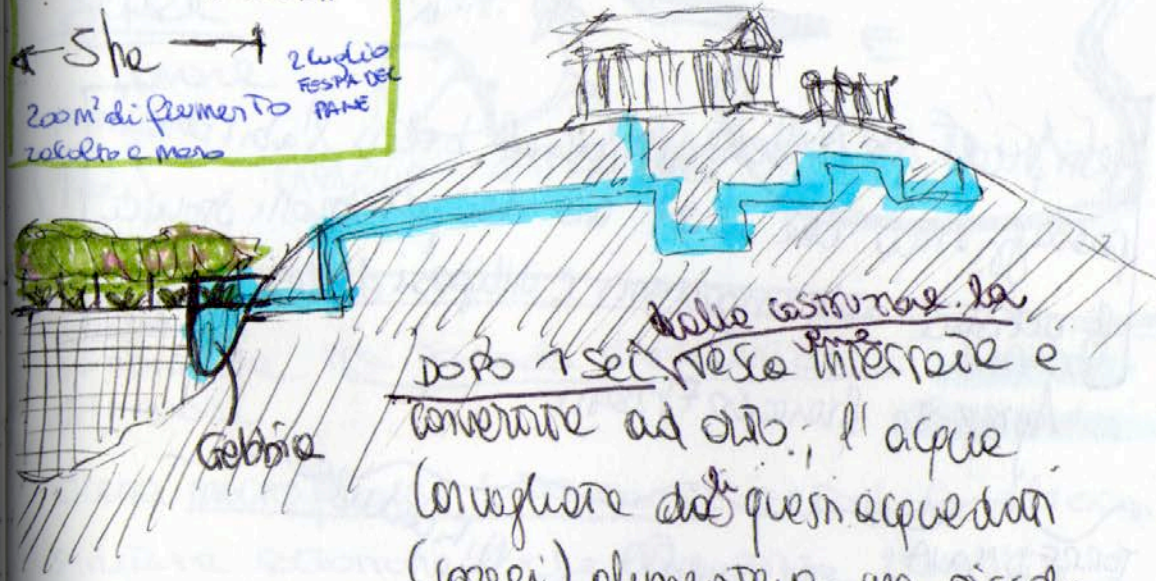 5 ha
2 luglio
FESTA DEL
PANE
200 m² di frumento
raccolto e
Gebbia
dalla costruzione la
DOPO 1 sec vasca interrata e
convertita ad orto. l'acqua
convogliata da questi acquedotti